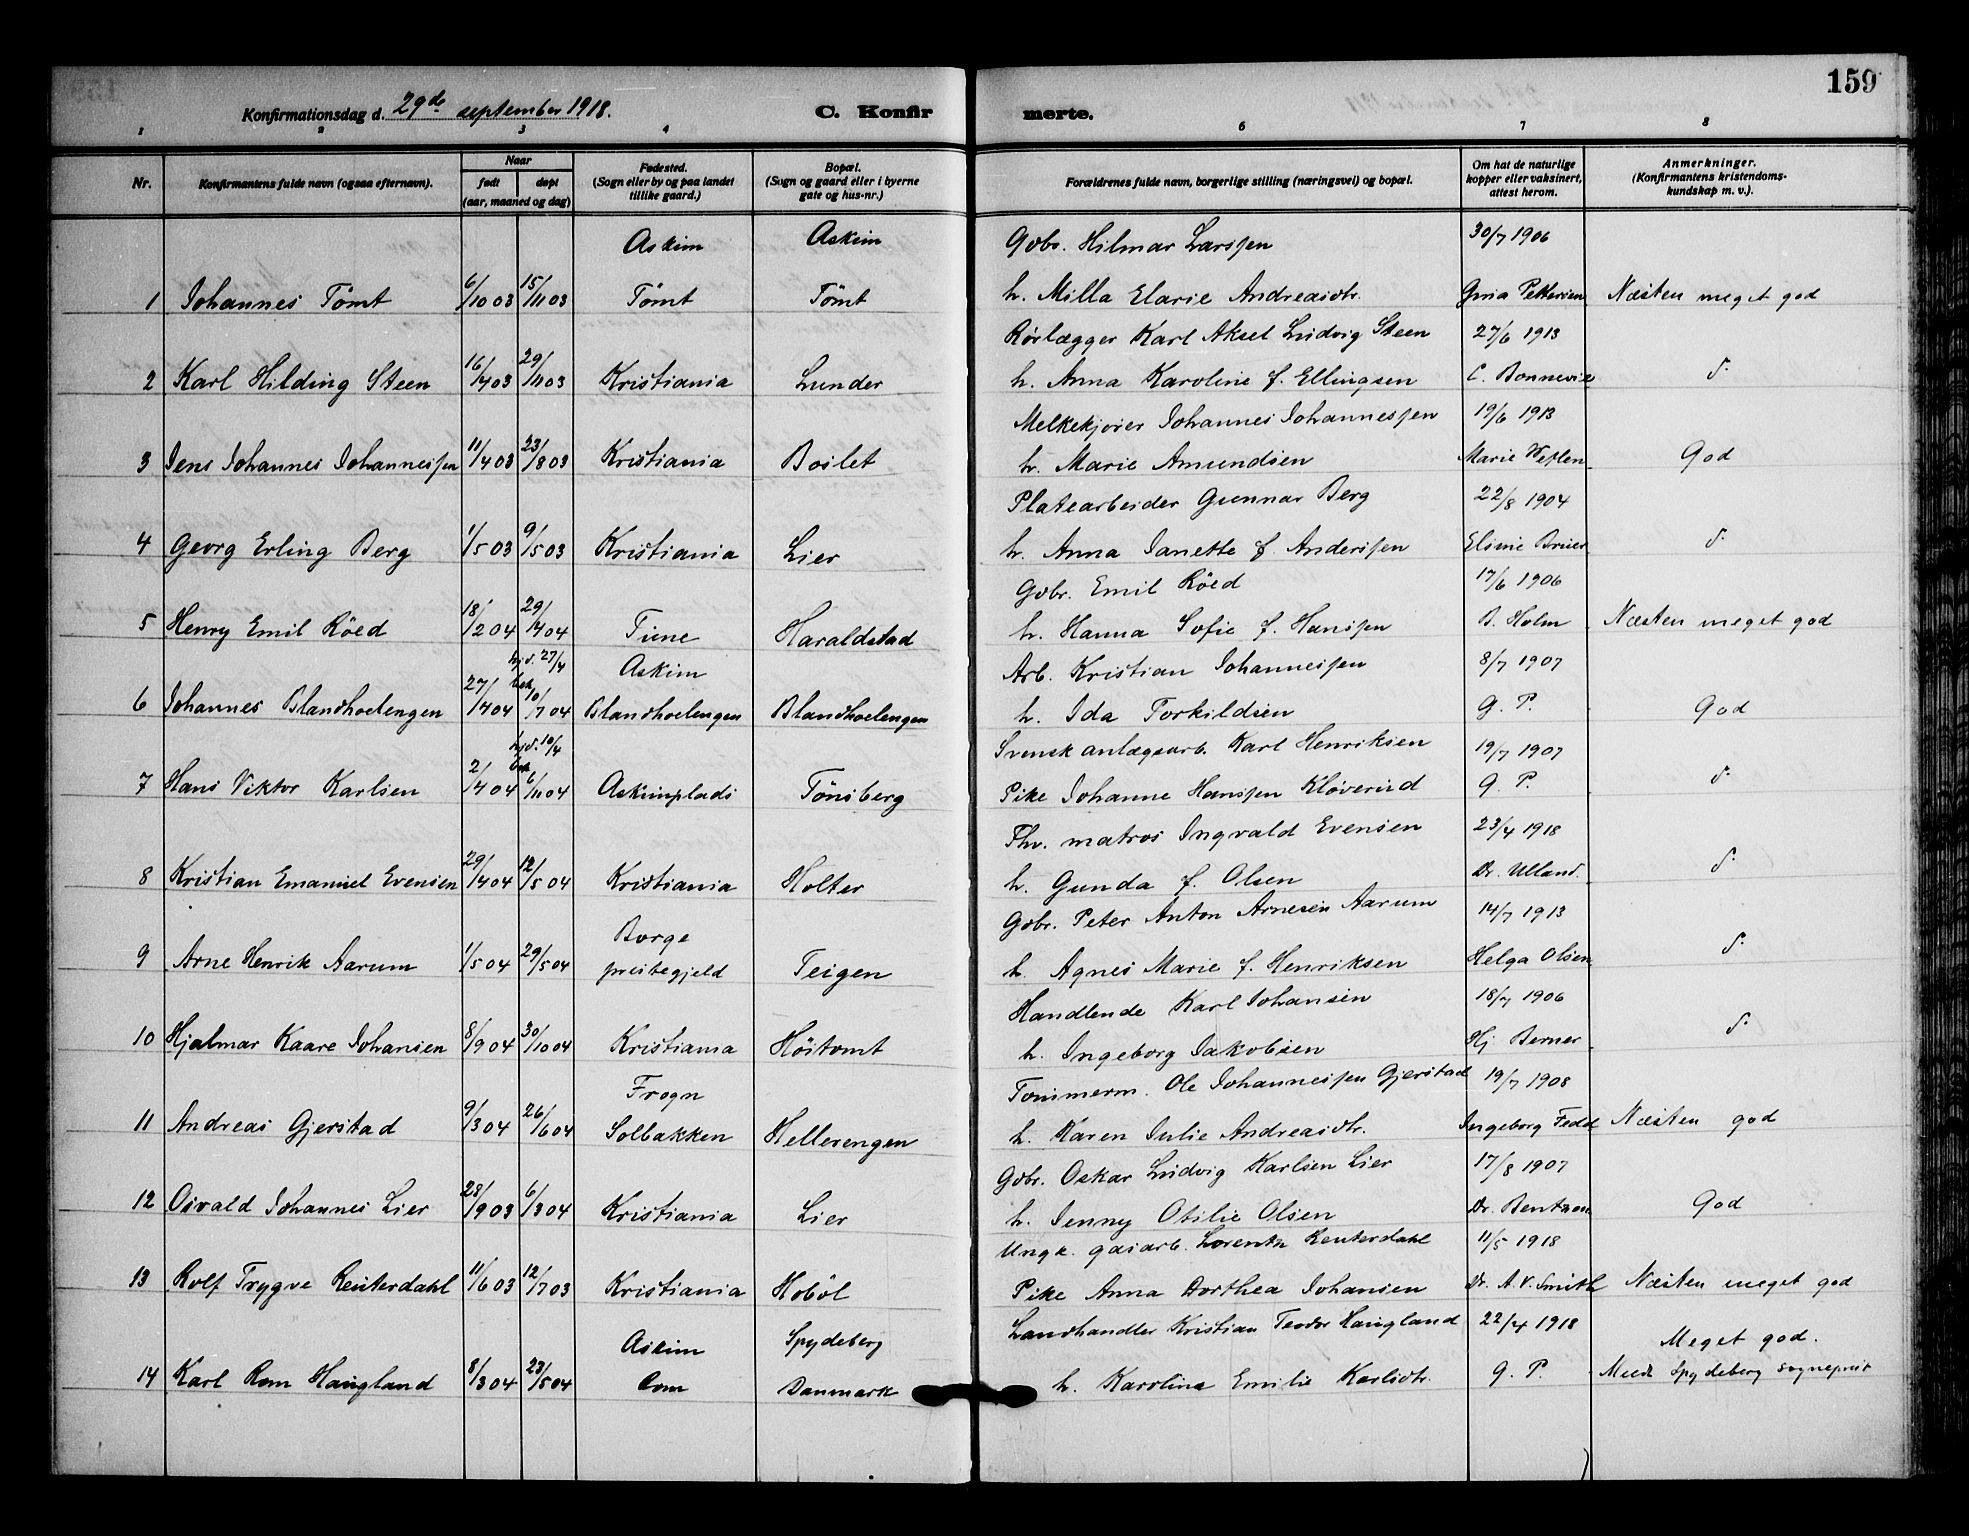 159
Konfirmationsdag d. 29de september 1918.
C. Konfirmerte.
1 2 3 4 6 7 8
Nr.
Konfirmantens fulde navn (ogsaa efternavn).
Naar
født døpt
(aar, maaned og dag)
Fødested.
(Sogn eller by og paa landet
tillike gaard.)
Bopæl.
(Sogn og gaard eller i byerne
gate og hus-nr.)
Forældrenes fulde navn, borgerlige stilling (næringsvei) og bopæl.
Om hat de naturlige
kopper eller vaksinert,
attest herom.
Anmerkninger.
(Konfirmantens kristendoms-
kundskap m. v.).
Askim Askim Gdbr. Hilmar Larssen 30/7 1906
1 Johannes Tömt 6/10 03 15/11 03 Tömt Tömt h. Milla Elarie Andreasdtr. Gina Pettersen Næsten meget god
Rørlægger Karl Aksel Ludvig Steen 27/6 1913
2 Karl Hilding Steen 16/4 03 29/11 03 Kristiania Lunder h. Anna Karoline f. Ellingsen C. Bonnevie d:
Melkekjører Johannes Johannessen 19/6 1913
3 Jens Johannes Johannessen 11/4 03 23/8 03 Kristiania Boslet h. Marie Amundsen Marie God
Platearbeider Gunnar Berg 22/8 1904
4 Georg Erling Berg 1/5 03 9/5 03 Kristiania Lier h. Anna Janette f. Anderssen d:
Gdbr. Emil Röed 17/6 1906
5 Henry Emil Röed 18/2 04 29/4 04 Tune Haraldstad h. Hanna Sofie f. Hanssen B. Holm Næsten meget god
hjd. 27/4 Askim Arb. Kristian Johannessen 8/7 1907
6 Johannes Blandhoelengen 27/4 04 bek. 10/7 04 Blandhoelengen Blandhoelengen h. Ida Torkildsen G. P. God
hjd. 10/4 Svensk anlægsarb. Karl Henriksen 19/7 1907
7 Hans Viktor Karlsen 2/4 04 bek. 6/11 04 Askimplads Tönsberg Pike Johanne Hanssen Kløverud G. P. d:
Fhv. matros Ingvald Evensen 23/4 1918
8 Kristian Emanuel Evensen 29/4 04 12/5 04 Kristiania Holter h. Gunda f. Olsen Dr. Ulland. d:
Borge Gdbr. Peter Anton Arnesen Aarum 14/7 1913
9 Arne Henrik Aarum 1/5 04 29/5 04 prestegjeld Teigen h. Agnes Marie f. Henriksen Helga Olsen d:
Handlende Karl Johansen 18/7 1906
10 Hjalmar Kaare Johansen 8/9 04 30/10 04 Kristiania Höitomt h. Ingeborg Jakobsen Hj. Berner d:
Frogn Tømmerm. Ole Johannessen Gjerstad 19/7 1908
11 Andreas Gjerstad 9/3 04 26/6 04 Solbakken Hellerengen h. Karen Julie Andreasdtr. Ingeborg Næsten god
Gdbr. Oskar Ludvig Karlsen Lier 17/8 1907
12 Osvald Johannes Lier 28/9 03 6/3 04 Kristiania Lier h. Jenny Otilie Olsen Dr. Bentzon God
Ungk. gasarb. Lorentz Reuterdahl 11/5 1918
13 Rolf Trygve Reuterdahl 11/6 03 12/7 03 Kristiania Hoböl Pike Anna Dorthea Johansen Dr. A. V. Smith Næsten meget god
Askim Spydeberg Landhandler Kristian Teodor Haugland 22/4 1918 Meget god.
14 Karl Rom Haugland 8/3 04 23/5 04 Rom Danmark h. Karoline Emilie Karlsdtr. G. P. Meldt Spydeberg sogneprest